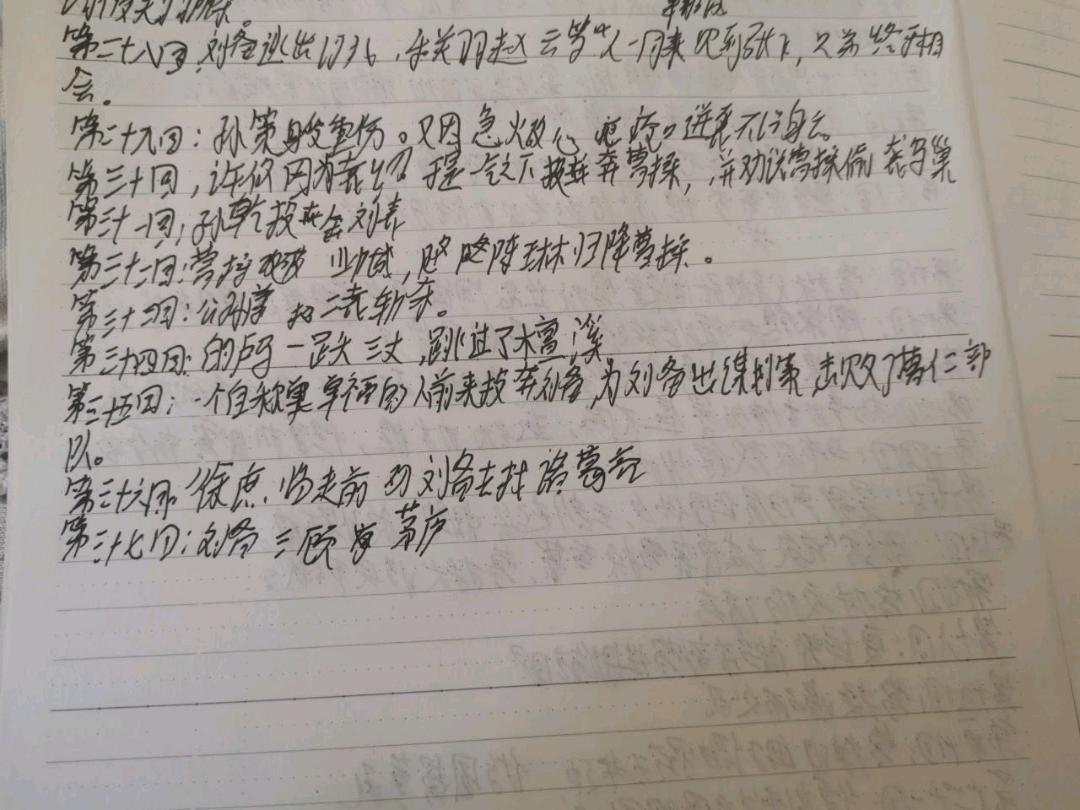 第二十八回，刘备逃出，关羽赵云等人一同来见到张飞，兄弟终于相
会。
第二十九回：孙策身受重伤。又因急火攻心，疮口迸裂不治身亡。
第三十回，许攸因为袁绍 于是一气之下投奔曹操，并劝说曹操偷袭乌巢
第三十一回；孙乾投奔刘表
第三十二回：曹操破 城，陈琳归降曹操。
第三十三回：公孙 将二袁斩杀。
第三十四回：的卢马一跃三丈，跳过了大 溪
第三十五回；一个自称 单福的人前来投奔刘备，为刘备出谋划策，击败了曹仁部
队。
第三十六回：徐庶 临走前 劝刘备去找诸葛亮
第三十七回：刘备三顾 茅庐